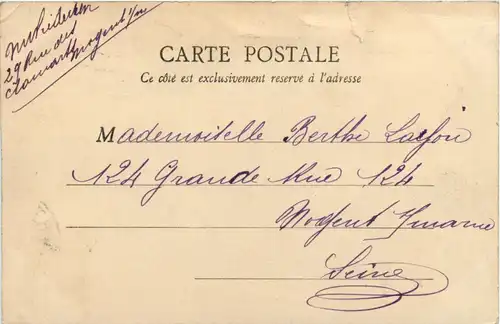 29 Rue des
Clamarts Nogent s/m
CARTE POSTALE
Ce côté est exclusivement reservé à l'adresse
Mademoiselle Berthe Lafon
124 Grande Rue 124
Nogent s/marne
Seine